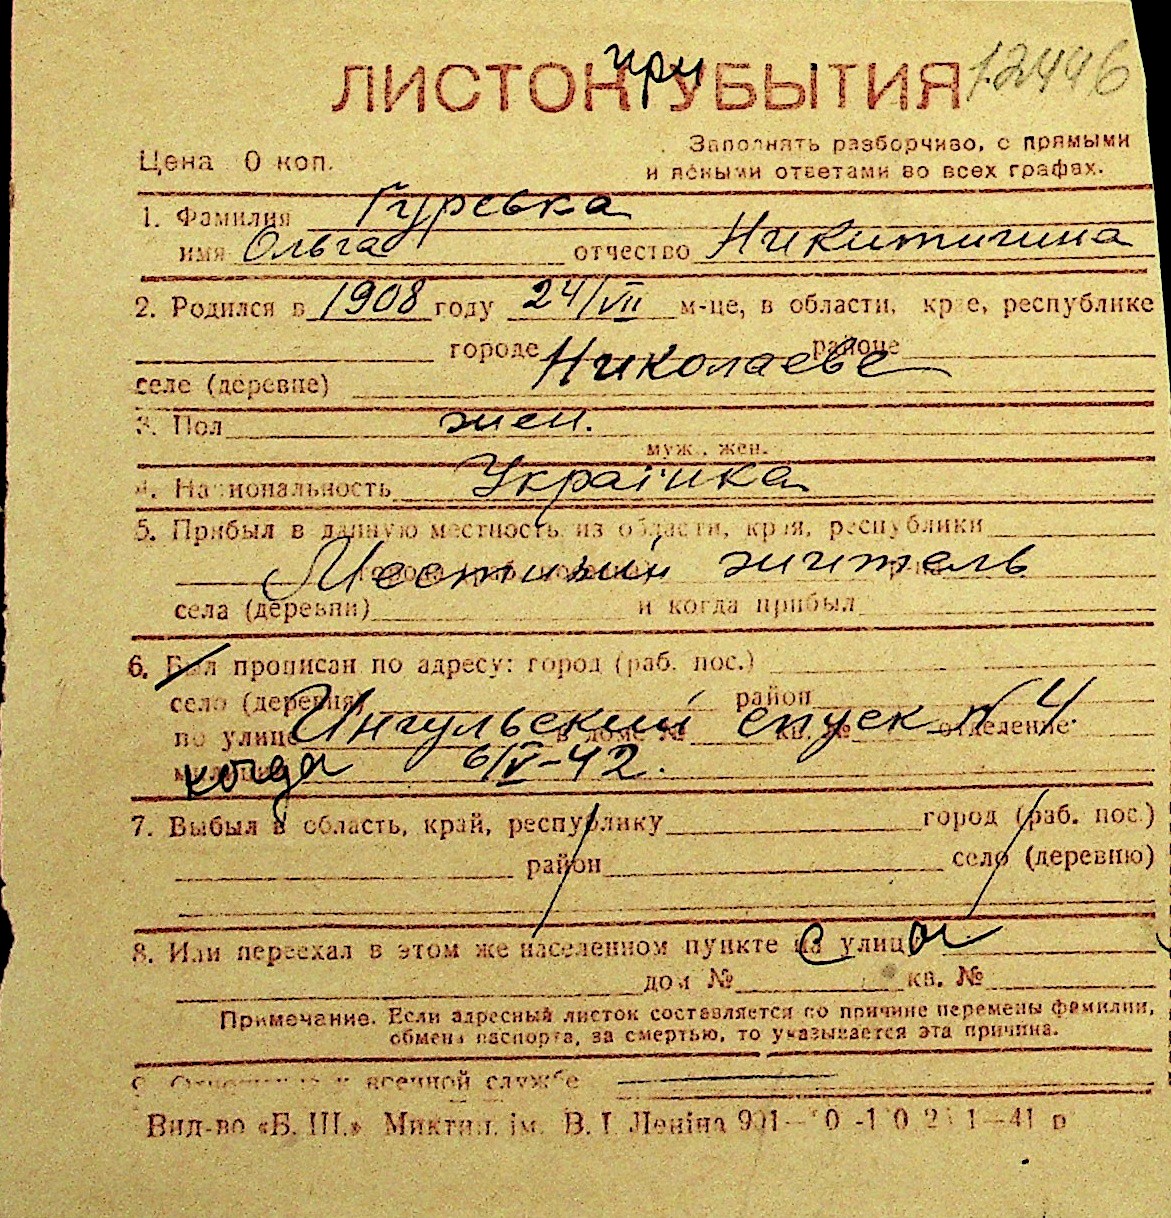 при 12446
ЛИСТОК УБЫТИЯ
Заполнять разборчиво, с прямыми
Цена 0 коп. и ясными ответами во всех графах.
1. Фамилия Гуревка
имя Ольга отчество Никитична
2. Родился в 1908 году 24/VII м-це, в области, крае, республике
городе Николаеве районе
селе (деревне)
3. Пол жен.
муж., жен.
4. Национальность Українка
5. Прибыл в данную местность из области, края, республики
Местный житель
села (деревни) и когда прибыл
6. Был прописан по адресу: город (раб. пос.)
село (деревня) район
по улице Ингульский спуск N 4. в доме № кв. № отделение
когда 6/V-42.
7. Выбыл в область, край, республику город (раб. пос.)
район село (деревню)
8. Или переехал в этом же населенном пункте на улицу
дом № кв. №
Примечание. Если адресный листок составляется по причине перемены фамилии,
обмена паспорта, за смертью, то указывается эта причина.
9. Отношение к военной службе
Вид-во «Б. Ш.» Миктип. ім. В. І. Леніна